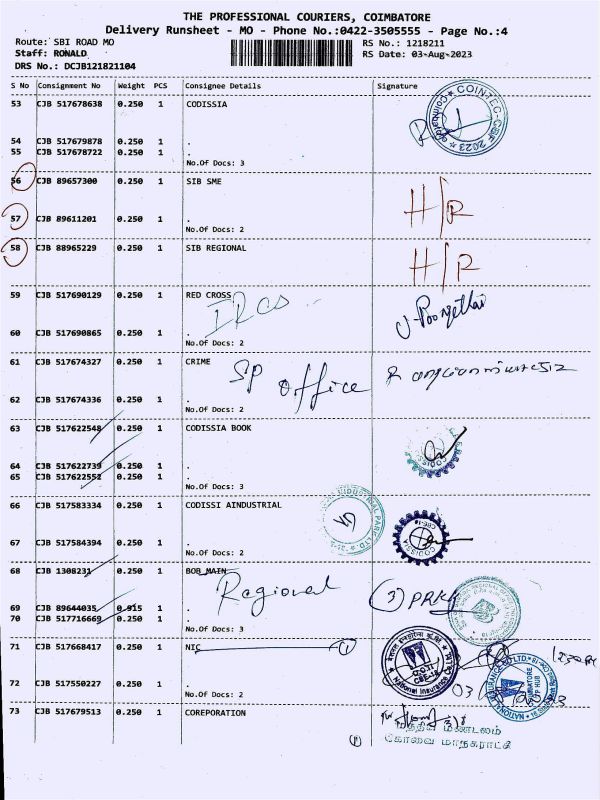 THE PROFESSIONAL COURIERS, COIMBATORE
Delivery Runsheet - MO - Phone No.:0422-3505555 - Page No.:4
Route: SBI ROAD MO
RS No.: 1218211
Staff: RONALD
RS Date: 03-Aug-2023
DRS No.: DCJB121821104
S No Consignment No Weight PCS Consignee Details Signature
53 CJB 517678638 0.250 1 CODISSIA
COINTEC-CBE
2023
54 CJB 517679878 0.250 1 .
55 CJB 517678722 0.250 1
No.Of Docs: 3
56 CJB 89657300 0.250 1 SIB SME
H/R
57 CJB 89611201 0.250 1 .
No.Of Docs: 2
58 CJB 88965229 0.250 1 SIB REGIONAL
H/R
59 CJB 517690129 0.250 1 RED CROSS
IRCS
60 CJB 517690865 0.250 1 .
No.Of Docs: 2
61 CJB 517674327 0.250 1 CRIME
SP office
62 CJB 517674336 0.250 1 .
No.Of Docs: 2
63 CJB 517622548 0.250 1 CODISSIA BOOK
64 CJB 517622739 0.250 1 .
65 CJB 517622552 0.250 1
No.Of Docs: 3
66 CJB 517583334 0.250 1 CODISSI AINDUSTRIAL
INDUSTRIAL PARK LTD.
67 CJB 517584394 0.250 1 .
CODISSIA
CBE-18
No.Of Docs: 2
68 CJB 1308231 0.250 1 BOB MAIN
Regional
3
69 CJB 89644035 0.915 1 .
70 CJB 517716669 0.250 1
No.Of Docs: 3
71 CJB 517668417 0.250 1 NIC
1
National Insurance Co. Ltd.
CBE-18
72 CJB 517550227 0.250 1 .
No.Of Docs: 2
73 CJB 517679513 0.250 1 COREPORATION
மத்திய மண்டலம்
கோவை மாநகராட்சி